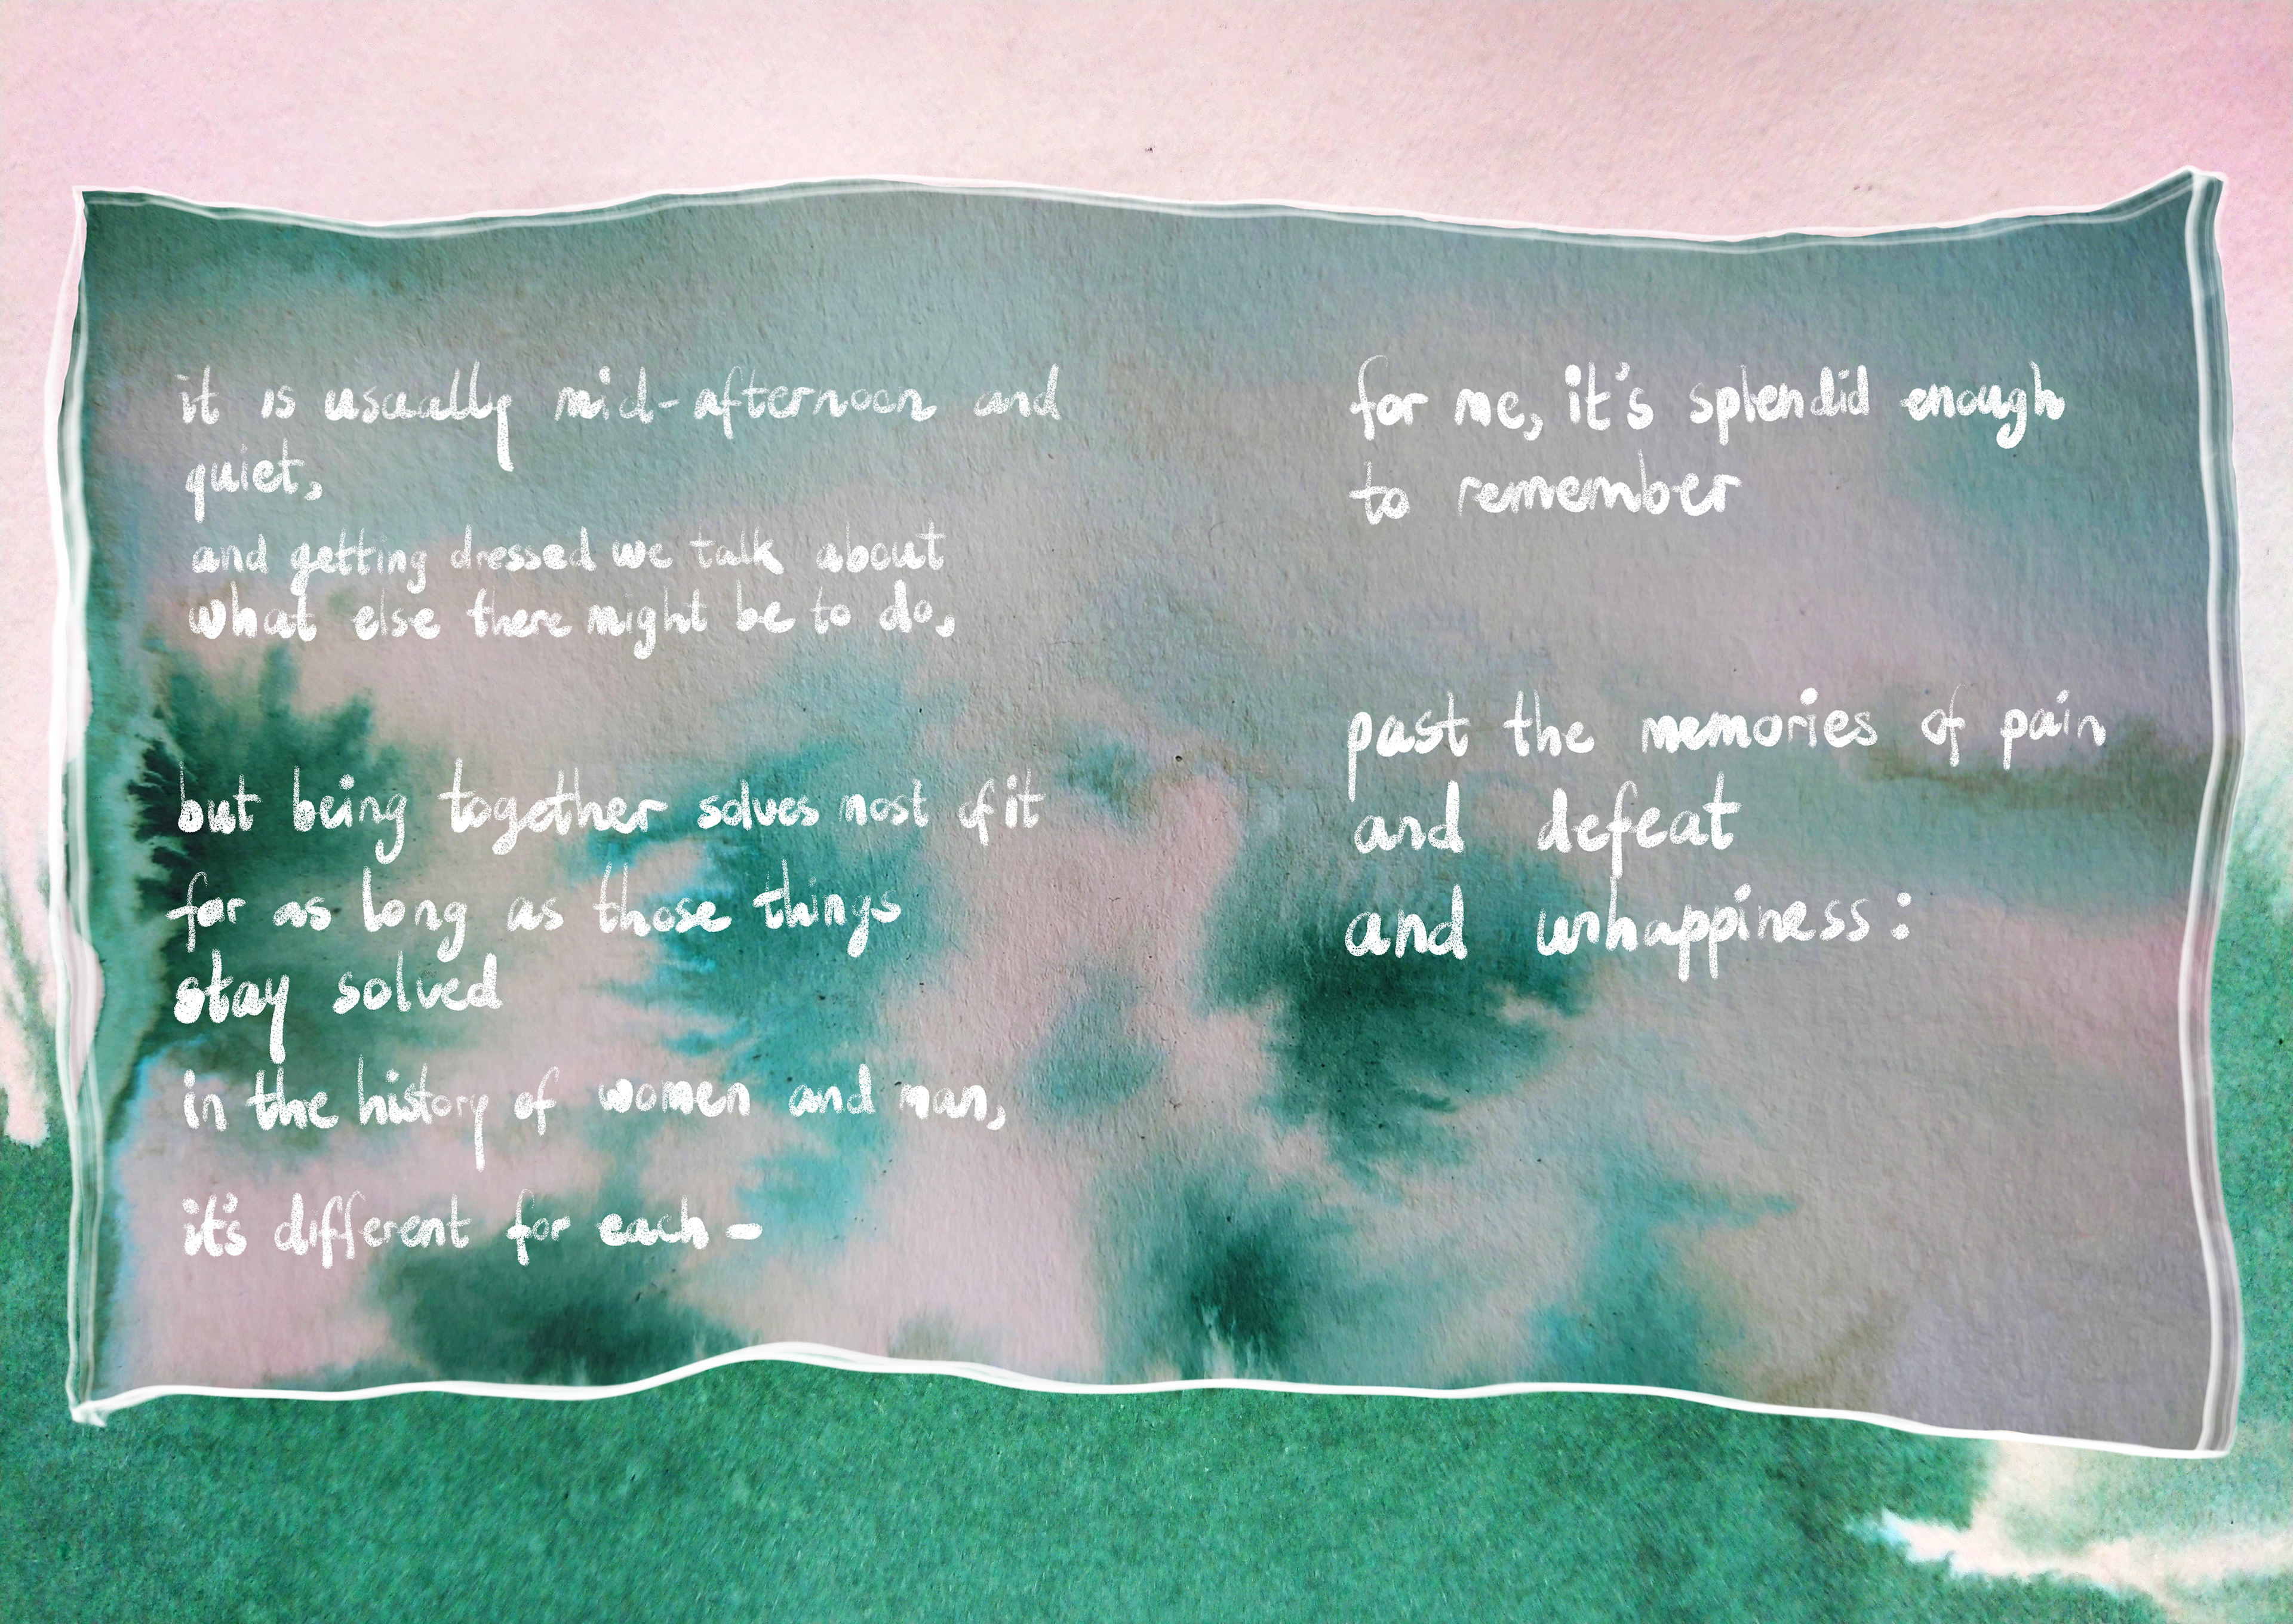 it is usually mid-afternoon and
quiet,
and getting dressed we talk about
what else there might be to do,
but being together solves most of it
for as long as those things
stay solved
in the history of women and man,
it's different for each -
for me, it's splendid enough
to remember
past the memories of pain
and defeat
and unhappiness: